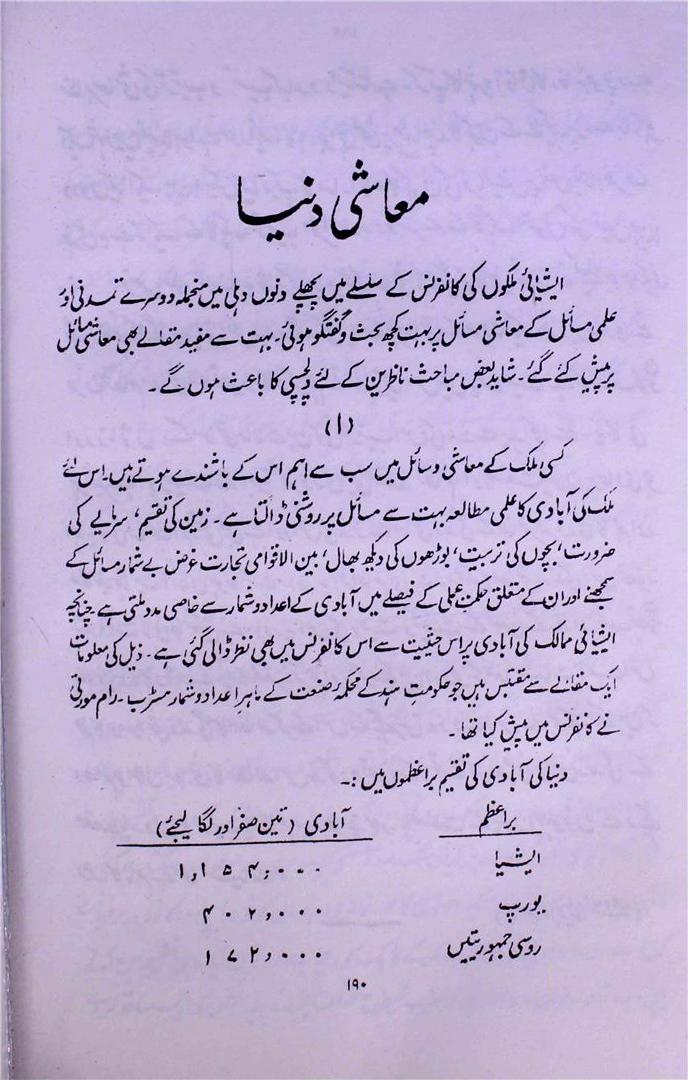 معاشی دنیا
ایشیائی ملکوں کی کانفرنس کے سلسلے میں پچھلے دنوں دہلی میں منجملہ دوسرے تمدنی اور
علمی مسائل کے معاشی مسائل پر بہت کچھ بحث و گفتگو ہوئی۔ بہت سے مفید مقالے بھی معاشی مسائل
پر پیش کئے گئے۔ شاید بعض مباحث ناظرین کے لئے دلچسپی کا باعث ہوں گے۔
(۱)
کسی ملک کے معاشی وسائل میں سب سے اہم اس کے باشندے ہوتے ہیں۔ اس لئے
ملک کی آبادی کا علمی مطالعہ بہت سے مسائل پر روشنی ڈالتا ہے۔ زمین کی تقسیم، سرمایے کی
ضرورت، بچوں کی تربیت، بوڑھوں کی دیکھ بھال، بین الاقوامی تجارت غرض بے شمار مسائل کے
سمجھنے اور ان کے متعلق حکمت عملی کے فیصلے میں آبادی کے اعداد و شمار سے خاصی مدد ملتی ہے چنانچہ
ایشیائی ممالک کی آبادی پر اس حیثیت سے اس کانفرنس میں بھی نظر ڈالی گئی ہے۔ ذیل کی معلومات
ایک مقالے سے مقتبس ہیں جو حکومتِ ہند کے محکمۂ صنعت کے ماہر اعداد و شمار مسٹر ب۔ رام مورتی
نے کانفرنس میں پیش کیا تھا۔
دنیا کی آبادی کی تقسیم براعظموں میں:۔
براعظم آبادی (تین صفر اور لگا لیجئے)
ایشیا ۱,۱۵۴,۰۰۰
یورپ ۴۰۲,۰۰۰
روسی جمہوریتیں ۱۷۲,۰۰۰
۱۹۰